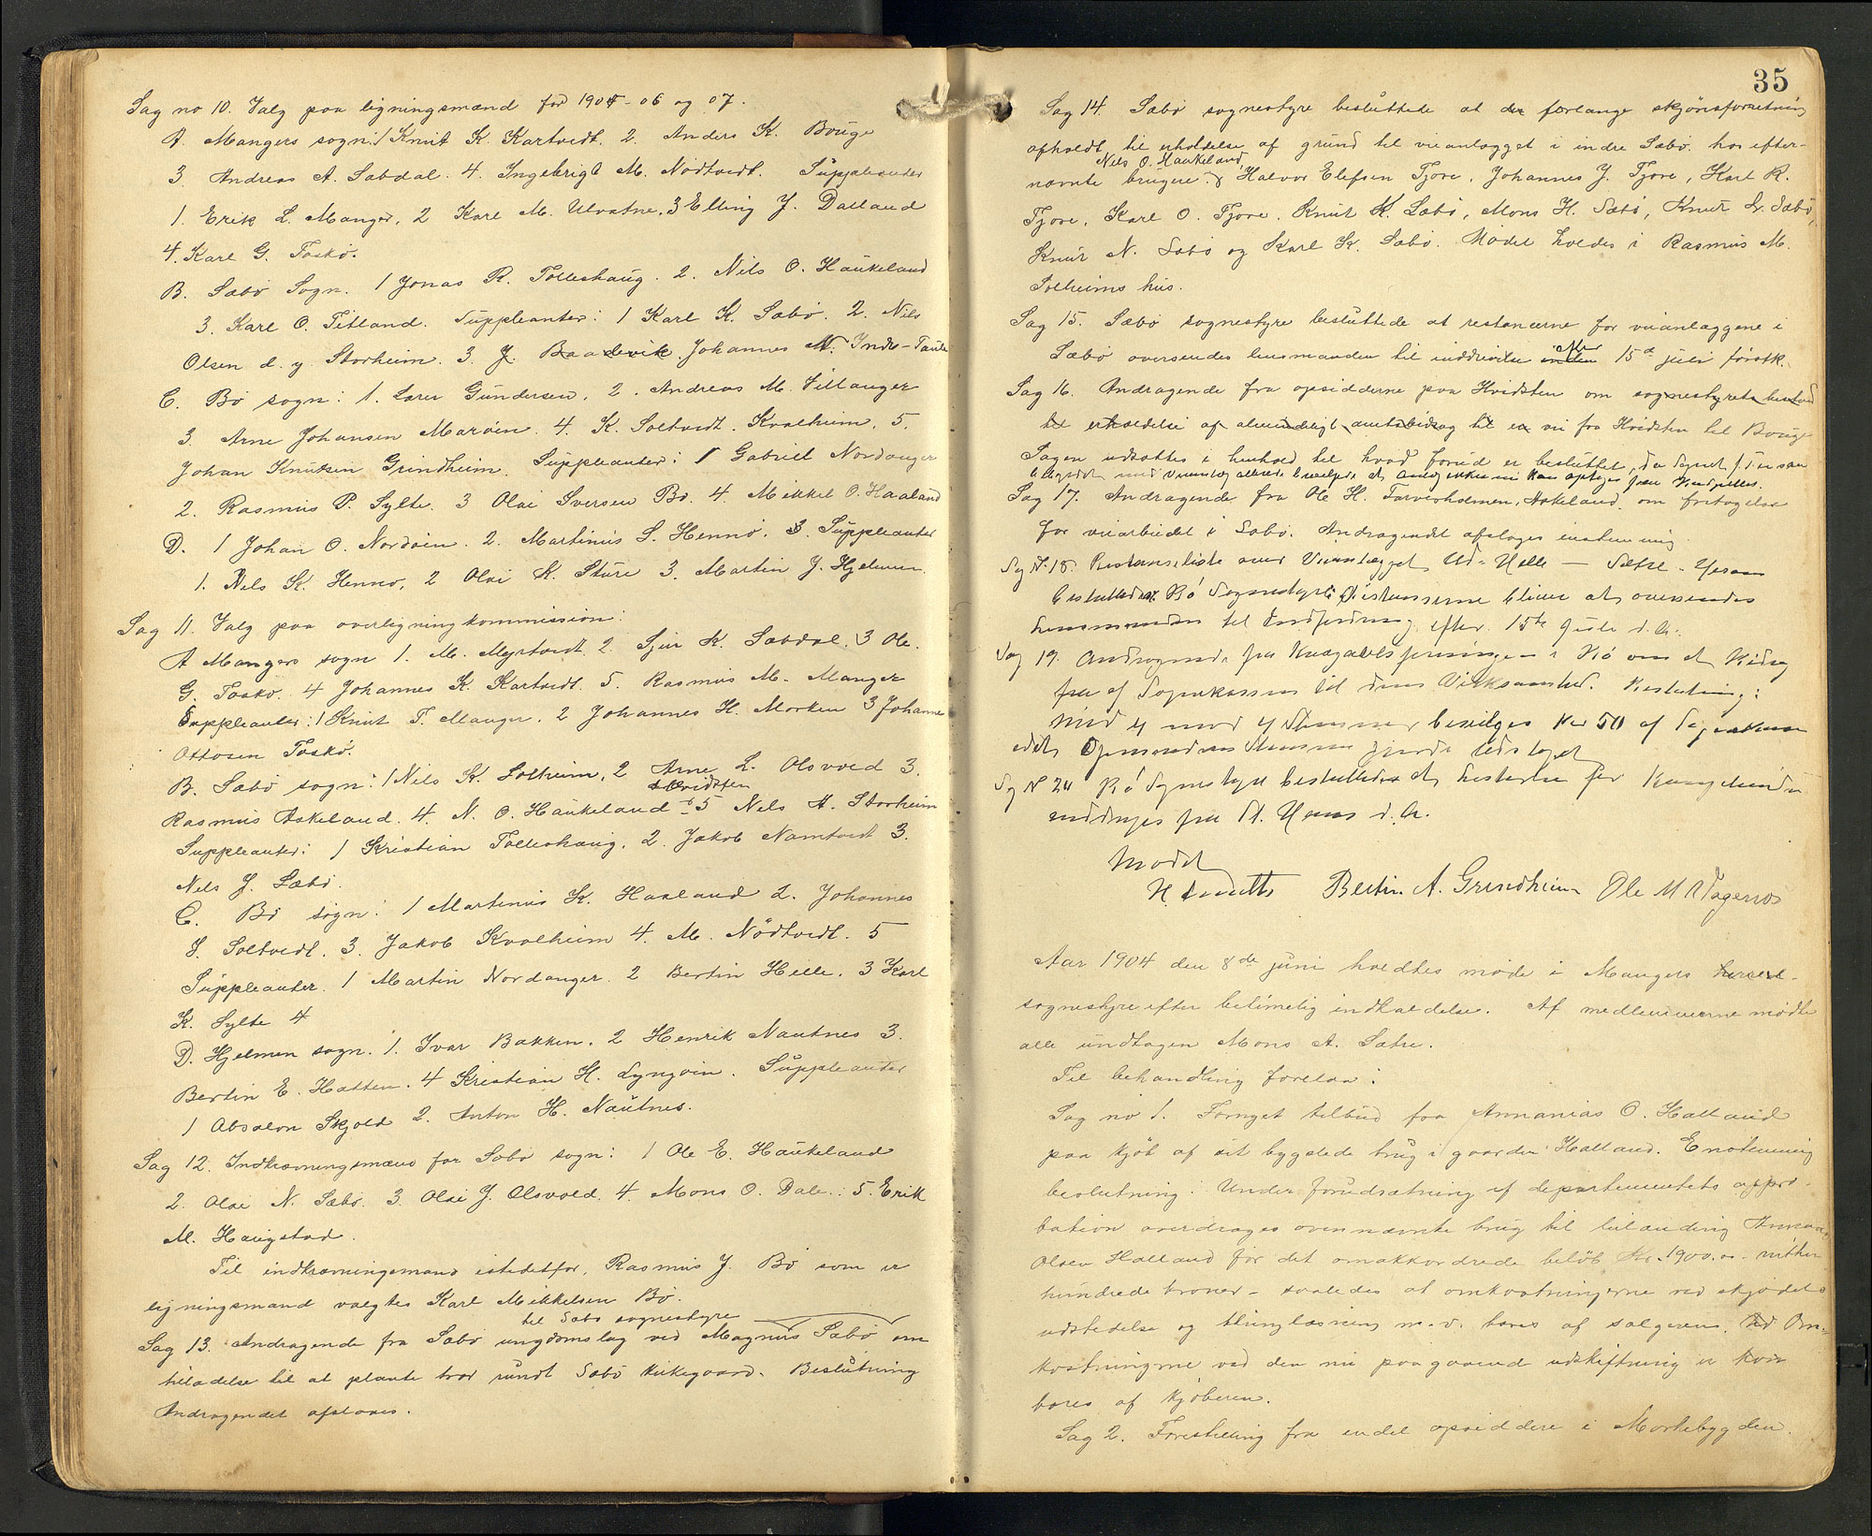 Sag no 10. Valg paa ligningsmænd for 1905-06 og 07.
A. Mangers sogn: 1 Knut K. Kartveit. 2. Anders K. Bouge
3. Andreas A. Sæbdal. 4. Ingebrigt M. Nödtvedt. Suppleanter
1. Erik L. Manger, 2 Karl M. Ulvatne, 3 Elling J. Dalland
4. Karl G. Toskø.
B. Sæbø Sogn. 1 Jonas R. Tolleshaug. 2. Nils O. Haukeland
3. Karl O. Titland. Suppleanter: 1 Karl K. Sæbø. 2. Nils
Olsen d. y. Storheim. 3. Johannes N. Indre-Taule
C. Bø sogn: 1. Lars Gundersen, 2. Andreas M. Sillanger
3. Arne Johansen Marøen. 4. K. Soltvedt. Kvalheim, 5.
Johan Knutsen Grindheim. Suppleanter: 1 Gabriel Nordanger
2. Rasmus P. Sylte. 3 Olai Iversen Bø. 4. Mikkel O. Haaland
D. 1 Johan O. Nordøen. 2. Martinus S. Hennø. 3. Suppleanter
1. Nils K. Henno, 2 Olai K. Sture 3. Martin J. Hjelmen.
Sag 11. Valg paa overligningkommission:
A Mangers sogn 1. M. Myrtvedt. 2. Sjur K. Sæbdal. 3 Ole
G. Toskø. 4 Johannes K. Kartveit. 5. Rasmus M. Manger
Suppleanter: 1 Knut T. Manger. 2 Johannes H. Morken 3 Johannes
Ottosen Toskø.
B. Sæbø sogn: 1 Nils K. Solheim, 2 Arne L. Olsvold 3.
Hvidsten
Rasmus Askeland. 4. N. O. Haukeland 5 Nils A. Storheim
Suppleanter: 1 Kristian Tolleshaug. 2. Jakob Namtvedt 3.
Nils J. Sæbø.
C. Bø sogn: 1 Martinus K. Haaland 2. Johannes
S. Soltvedt. 3. Jakob Kvalheim 4. M. Nödtvedt. 5
Suppleanter. 1 Martin Nordanger. 2 Bertin Helle. 3 Karl
K. Sylte 4
D. Hjelmen sogn. 1. Ivar Bakken. 2 Henrik Nautnes 3.
Bertin E. Hatten. 4 Kristian H. Lyngøin. Suppleanter
1 Absalon Skjold 2. Anton H. Nautnes.
Sag 12. Indkrævningsmænd for Sæbø sogn: 1 Ole E. Haukeland
2. Olai N. Sæbø. 3. Olai J. Olsvold. 4. Mons O. Dale. 5. Erik
M. Haugstad.
Til indkrævningsmand istedetfor, Rasmus J. Bø som er
ligningsmand valgtes Karl Mikkelsen Bø.
til Sæbø sognestyre
Sag 13. Andragende fra Sæbø ungdomslag ved Magnus Sæbø om
tiladelse til at plante trær rundt Sæbø kirkegaard. Beslutning
Andragendet afslaaes.
35
Sag 14. Sæbø sognestyre besluttede at forlange skjønsforretning
afholdt til erholdelse af grund til veianlægget i indre Sæbø. hos efter-
Nils O. Haukeland
nævnte brugere: Halvor Elefsen Fjøre, Johannes J. Fjøre, Karl R.
Fjøre, Karl O. Fjøre. Knut K. Sæbø, Mons H. Sæbø, Knut L. Sæbø,
Knut N. Sæbø og Karl K. Sæbø. Mødet holdes i Rasmus M.
Solheims hus.
Sag 15. Sæbø sognestyre besluttede at restancerne for veianlæggene i
efter
Sæbø oversendes lensmanden til inddrivelse inden 15de juli førstk.
Sag 16. Andragende fra opsidderne paa Hvidsten om sognestyrets
til erholdelse af almindeligt amtsbidrag til en vei fra Hvidsten til Bouge
Sagen udsættes i henhold til hvad forud er besluttet, da
Sag 17. Andragende fra Ole H. Askeland om fritagelse
for veiarbeidet i Sæbø. Andragendet afslages enstemmig
Sag N. 18. Restanseliste over Veianlægget Ud- Helle — Sætre
besluttedes Bø Sognestyre Restanserne bliver at oversendes
Lensmanden til Indfordring efter 15de Juli d. A.
Sag 19. Andragende fra i Bø om et Bidrag
fra af Sognekassen til dens Virksomhed. Beslutning:
Mod 4 mod 4 Stemmer bevilges Kr 50 af Sognekassen
idet Opmandens Stemme gjorde Udslaget
Sag N 20 Bø Sognestyre besluttedes at
inddrages fra St. Hans d. A.
Mødet
Bertin A. Grindheim Ole M
Aar 1904 den 8de juni holdtes møde i Mangers herred-
sognestyre efter betimelig indkaldelse. Af medlemmerne mødte
alle undtagen Mons A. Sætre.
Til behandling foretoes:
Sag no 1. Fornyet tilbud fra Annanias O. Halland
paa kjøb af sit bygslede brug i gaarden Halland. Enstemmig
beslutning: Under forudsætning af departementets appro-
bation overdrages ovennævnte brug til leilænding Annanias
Olsen Halland for det omakkorderede beløb Kr. 1900.00 nitten
hundrede kroner - saaledes at omkostningerne ved skjødets
udstedelse og thinglæsning m. v. bæres af sælgeren. Om-
kostningerne ved den nu paagaaende udskiftning
bæres af kjøberen.
Sag 2. Forestilling fra endel opsiddere i Morkebygden.